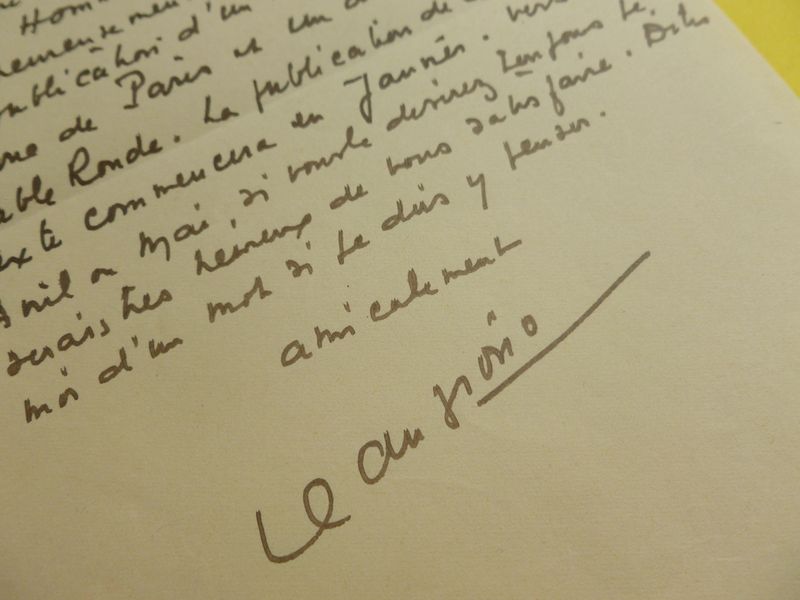 Homm
eureusemen
publication d'un
ne de Paris et un
able Ronde. La publication de
exte commencera en Janvier. vers
Avril ou Mai, si vous le désirez je
serais très heureux de vous satisfaire. Dites
moi d'un mot si je dois y penser.
amicalement
Jean Giono